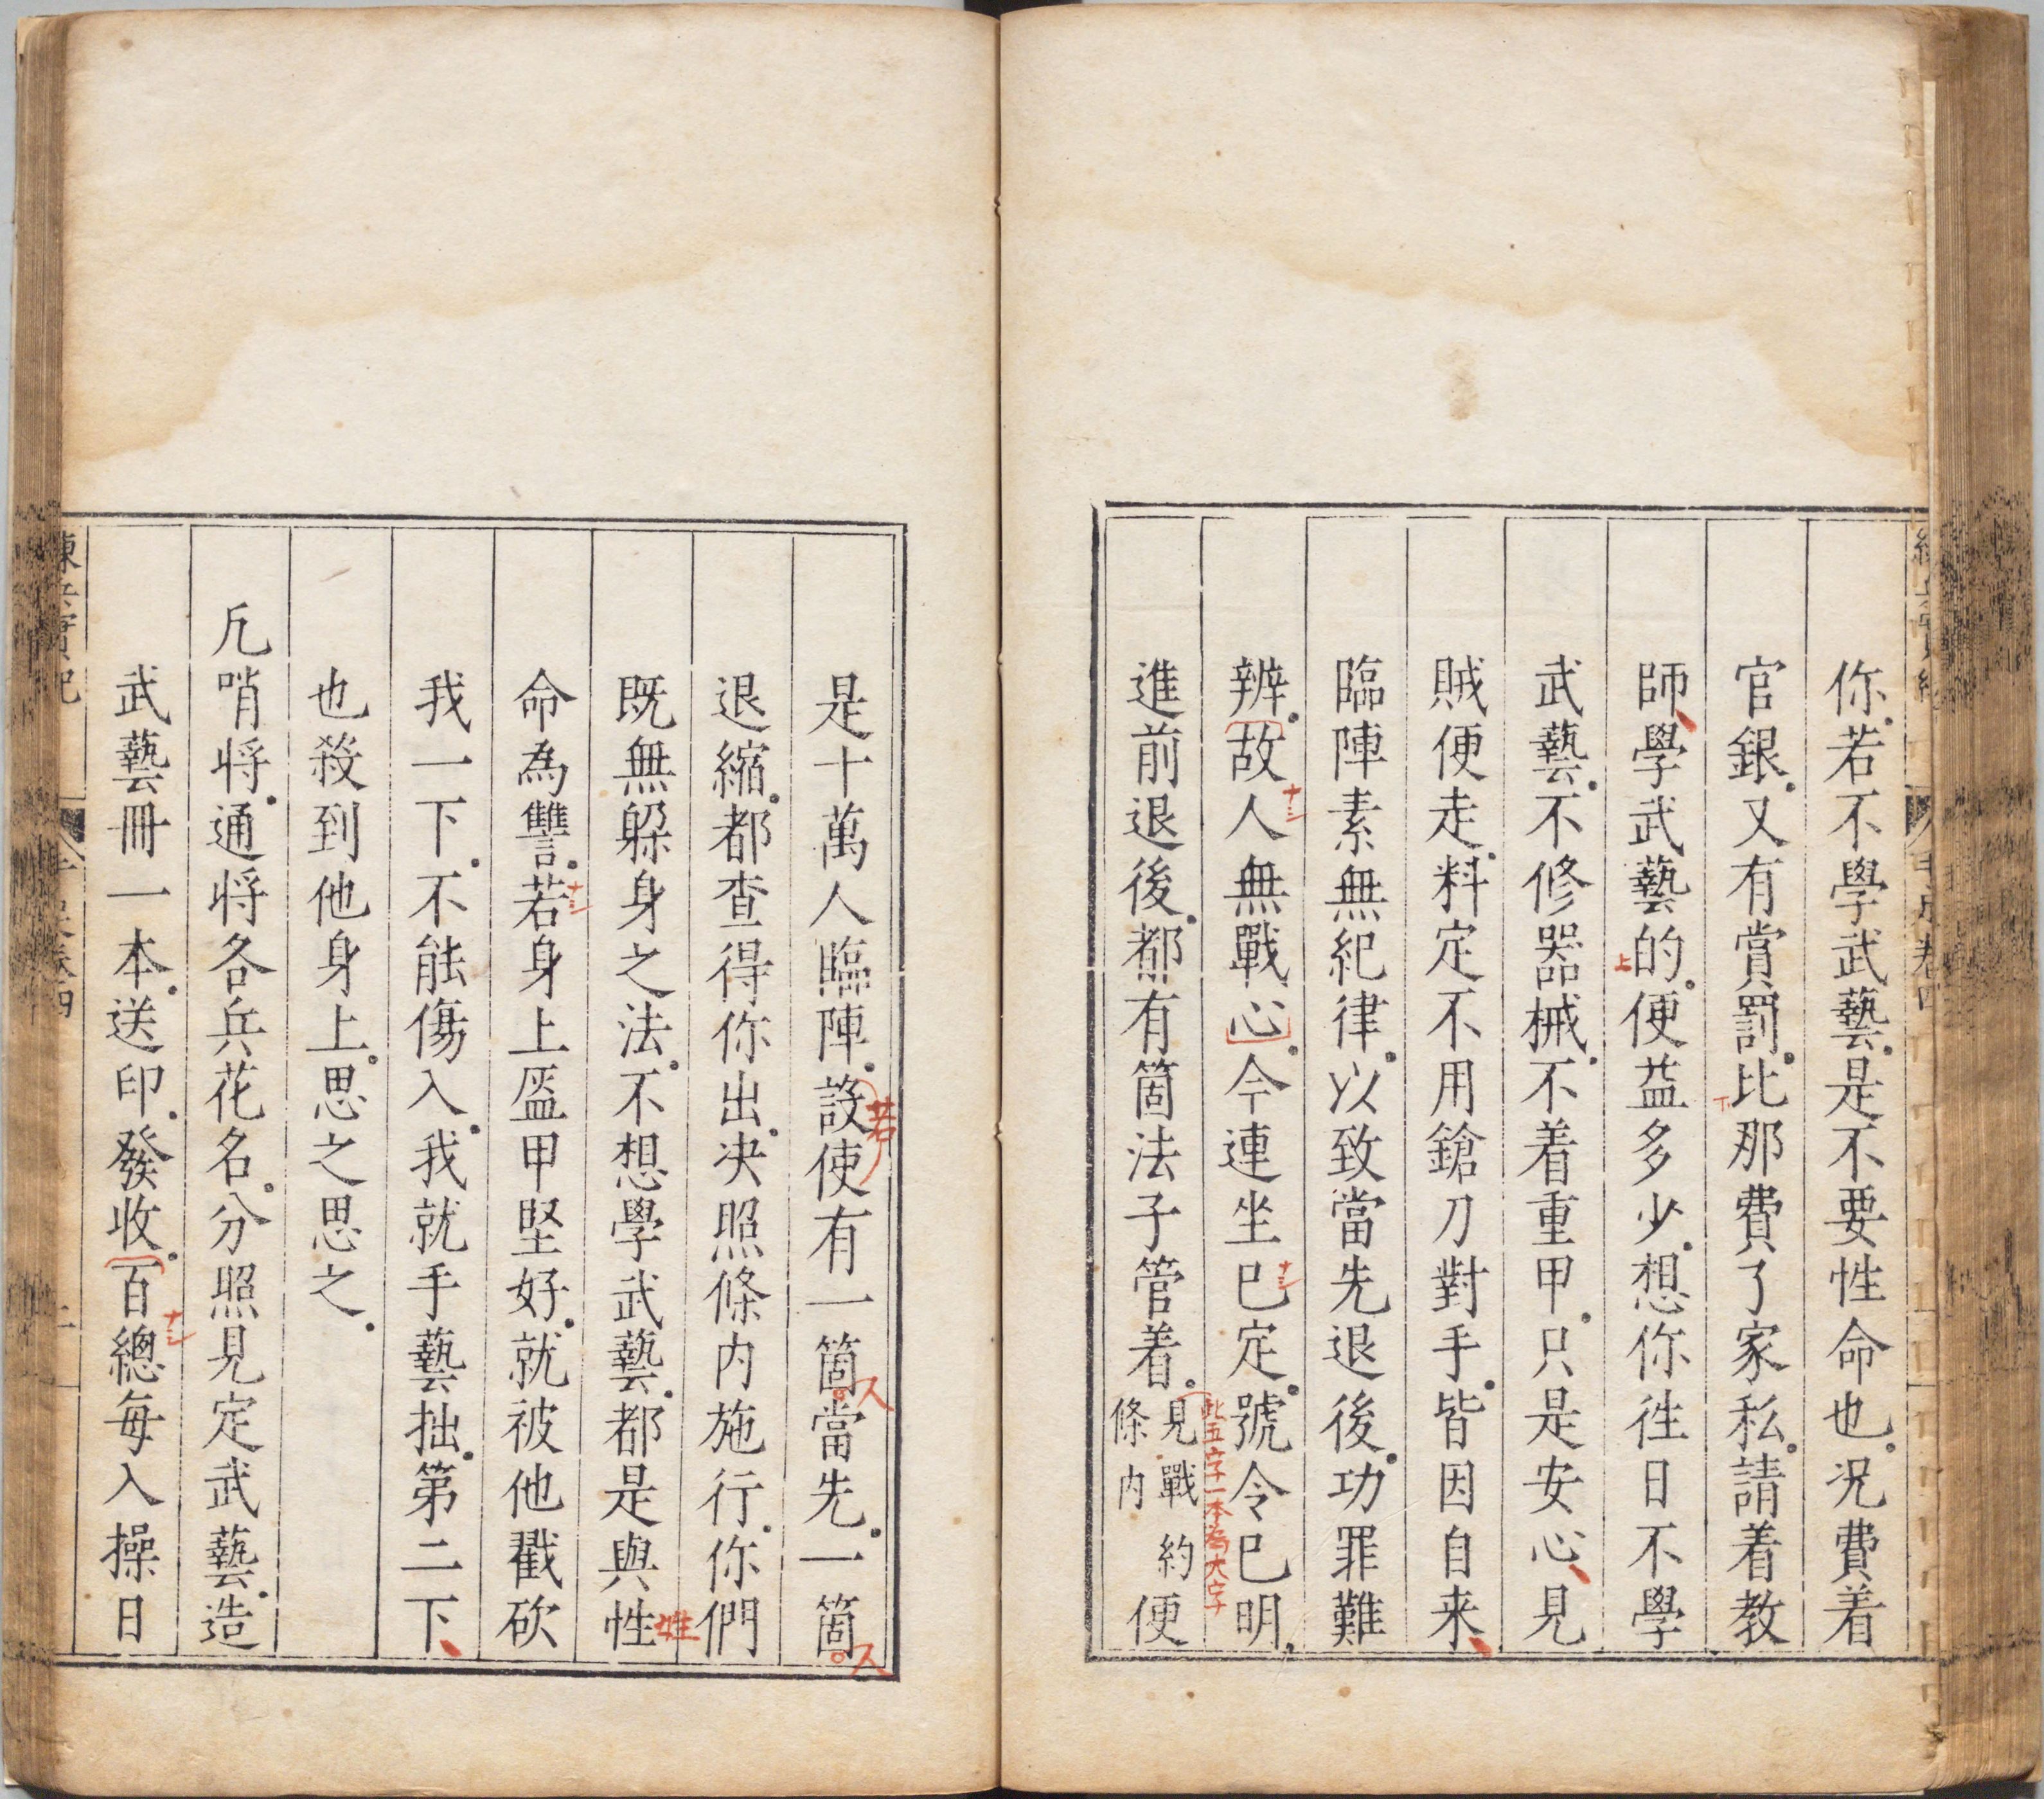 你若不學武藝是不要性命也况費着
官銀又有賞罰比那費了家私請着教
師學武藝的便益多少想你徃日不學
武藝不修器械不着重甲只是安心見
賊便走料定不用鎗刀對手皆因自来
臨陣素無紀律以致當先退後功罪難
辨故人無戰心今連坐已定號令已明
進前退後都有箇法子管着見戰約條内便
此五字一本為大字
是十萬人臨陣設使有一箇當先一箇
若
人
人
退縮都查得你出决照條内施行你們
既無躱身之法不想學武藝都是與性
性
命為讐若身上盔甲堅好就被他戳砍
我一下不能傷入我就手藝拙第二下
也殺到他身上思之思之
凢哨将通將各兵花名分照見定武藝造
武藝冊一本送印發收百總每入操日